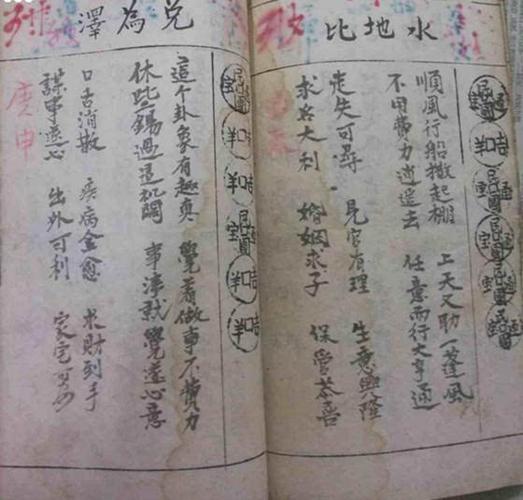 水地比
順風行船撤起棚 上天又助一蓬風
不用費力逍遥去 任意而行大亨通
走失可尋 見官有理 生意興隆
求名大利 婚姻求子 保管恭喜
兌為澤
這个卦象有趣真 覺着做事不費力
休比錯過這机関 事事就覺遂心意
口舌消散 疾病全愈 求財到手
謀事遂心 出外可利 家宅
庚申